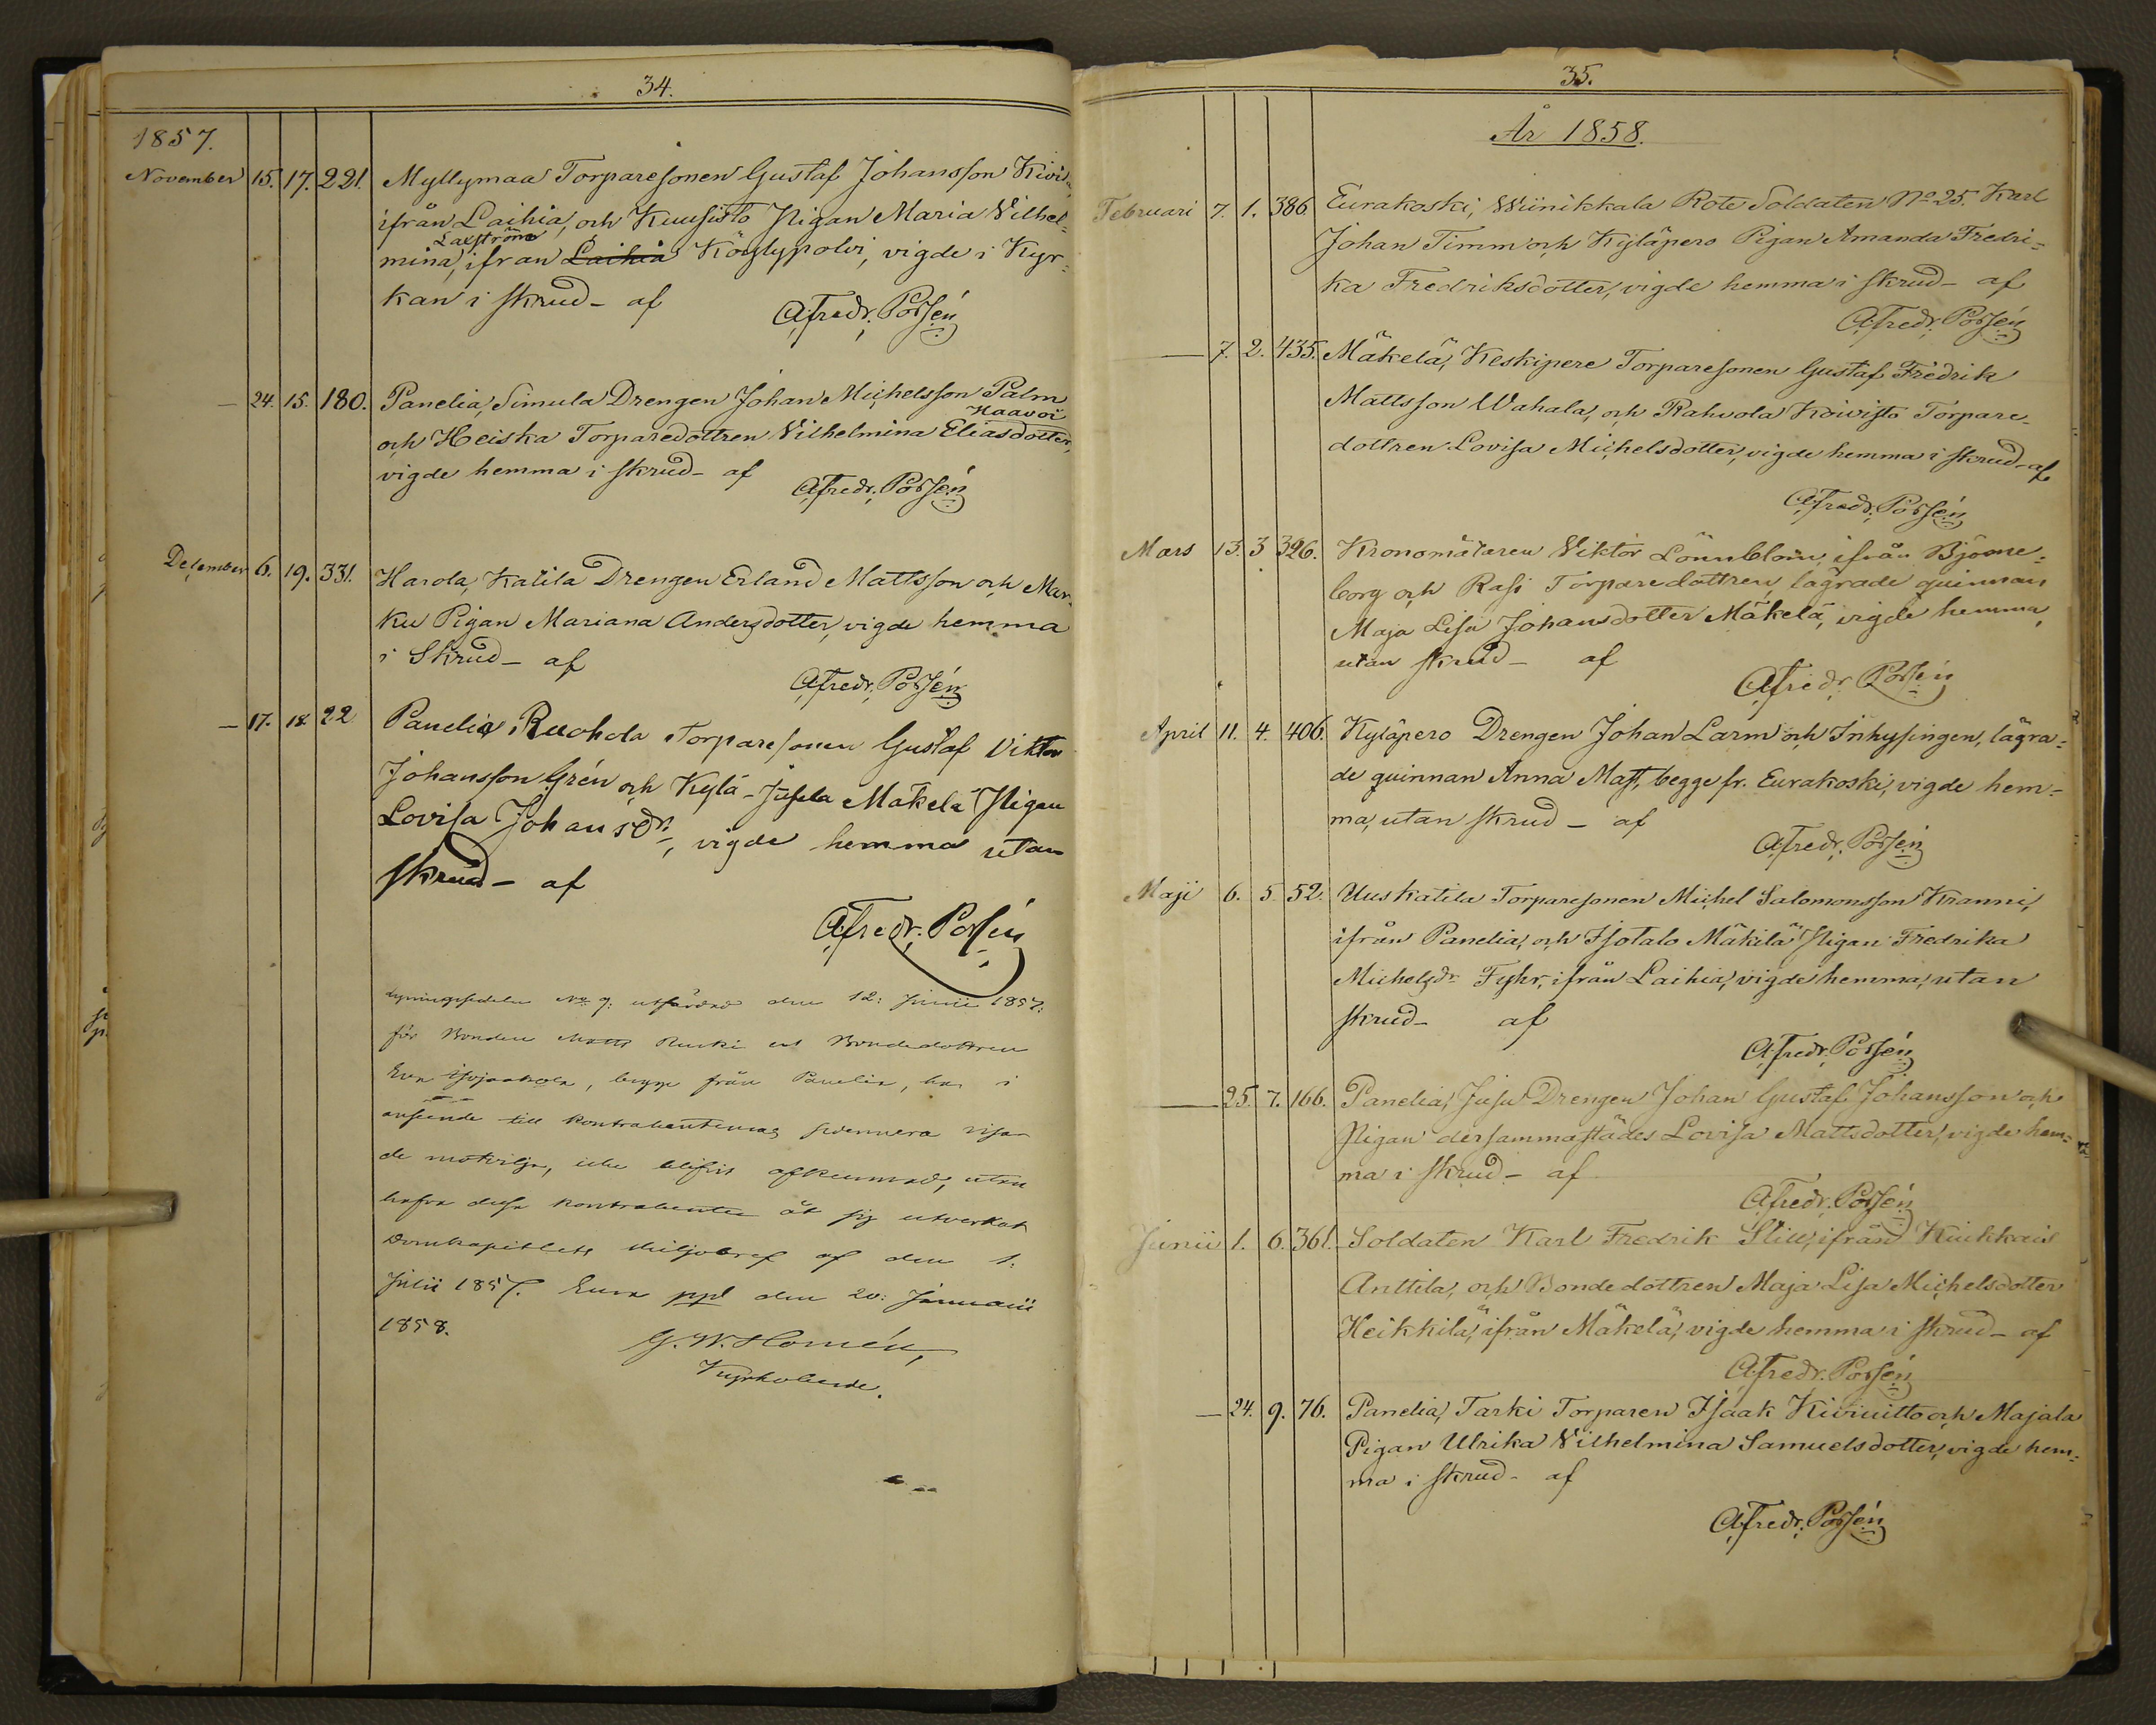 34.
1857.
November 15. 17. 221. Myllymaa Torparesonen Gustaf Johansson Kivi
ifrån Laihia, och Kuusisto Pigan Maria Vilhel=
Laxström
mina, ifran Laihia Köylypolvi, vigde i Kyr=
kan i skrud - af
A,Fredr. Possén
— 24. 15. 180. Panelia, Simula Drengen Johan Michelsson Palm
Haavoi
och Heiska Torparedottren Vilhelmina Eliasdotter,
vigde hemma i skrud - af
A,Fredr. Possén
December 6. 19. 331. Harola, Katila Drengen Erland Mattsson och Mar=
ku Pigan Mariana Andersdotter, vigde hemma
i Skrud - af
A,Fredr. Possén
— 17. 18. 22 Panelia, Ruohola Torparesonen Gustaf Viktor
Johansson Grén och Kylä-Jusela Mäkelä Pigan
Lovisa Johansdr, vigde hemma utan
skrud - af
A,Fredr. Possén
Lysningssedeln No 9: utfärdad den 12: Junii 1857:
för Bonden Matts och Bondedottren
Eva, begge från Panelia, har i
anseende till Kontrahenternas sedermera visa
de motvilja, icke blifvit afkunnad, utan
hafva dessa Kontrahenter åt sig utverkat
Domkapitlets skiljobref af den 1:
Julii 1857. Eura ppl den 20: Januarii
1858.
G. W. Homén,
Kyrkoherde.
35.
År 1858.
Februari 7. 1. 386 Eurakoski, Wiinikkala Rote Soldaten No 25. Karl
Johan Timm och Kyläpero Pigan Amanda Fredri=
ka Fredriksdotter, vigde hemma i skrud - af
A,Fredr. Possén
— 7. 2. 435. Mäkelä, Keskipere Torparesonen Gustaf Fredrik
Mattsson Wahala, och Rahvola Koivisto Torpare-
dottren Lovisa Michelsdotter, vigde hemma i skrud - af
A,Fredr. Possén
Mars 13. 3 326. Kronomätaren Viktor Lönnblom, ifrån Björne=
borg och Rasi Torparedottren, lägrade quinnan
Maja Lisa Johansdotter Mäkelä, vigde hemma,
utan skrud - af
A,Fredr. Possén
April 11. 4. 406. Kyläpero Drengen Johan Larm och Inhysingen, lägra=
de quinnan Anna Matt, begge fr. Eurakoski, vigde hem=
ma, utan skrud - af
A,Fredr. Possén
Maji 6. 5 52. Uuskatila Torparesonen Michel Salomonsson Kranni,
ifrån Panelia, och Isotalo Mäkilä Pigan Fredrika
Michelsdr Fyhr, ifrån Laihia, vigde hemma, utan
skrud - af
A,Fredr. Possén
— 25. 7. 166. Panelia, Jusu Drengen Johan Gustaf Johansson och
Pigan dersammastädes Lovisa Mattsdotter, vigde hem=
ma i skrud - af
A,Fredr. Possén
Junii 1. 6. 361. Soldaten Karl Fredrik Stick, ifrån Kiukkais
Anttila, och Bondedottren Maja Lisa Michelsdotter
Heikkilä, ifrån Mäkelä, vigde hemma i skrud - af
A,Fredr. Possén
— 24. 9. 76. Panelia, Tarki Torparen Isaak Kiviuitto och Majala
Pigan Ulrika Vilhelmina Samuelsdotter, vigde hem=
ma i skrud - af
A,Fredr. Possén